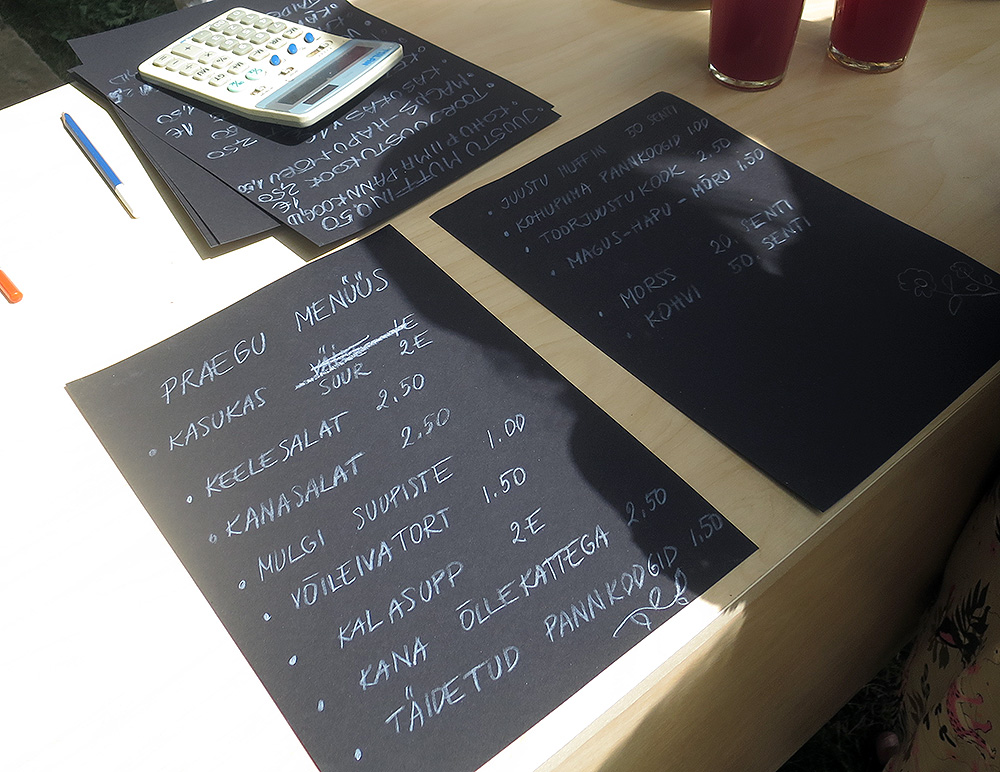 PRAEGU MENÜÜS
• KASUKAS
SUUR 2E
• KEELESALAT 2.50
• KANASALAT 2.50
• MULGI SUUPISTE 1.00
• VÕILEIVATORT 1.50
• KALASUPP 2E
• KANA ÕLLEKATTEGA 2.50
• TÄIDETUD PANNKOOGID 1.50
• JUUSTU MUFFIN 50 SENTI
• KOHUPIIMA PANNKOOGID 1.00
• TOORJUUSTU KOOK 2.50
• MAGUS-HAPU-MÕRU 1.50
• MORSS 20. SENTI
• KOHVI 50. SENTI
JUUSTU MUFFIN 0.50
KOHUPIIMA PANNKOOGID 1E
TOORJUUSTUKOOK 2.50
MAGUS-HAPU-MÕRU 1.50